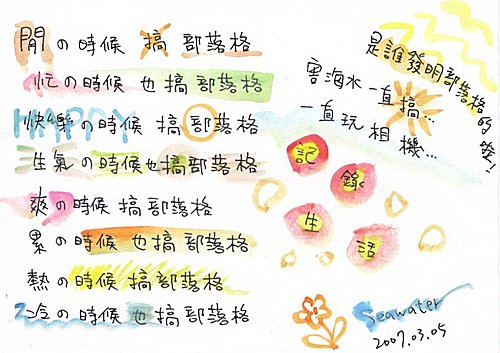 閒の時候 搞 部落格
忙の時候 也搞 部落格
HAPPY
快樂の時候 搞 部落格
生氣の時候也搞部落格
爽の時候 搞部落格
累の時候 也搞 部落格
熱の時候 搞 部落格
冷の時候 也搞 部落格
是誰發明部落格的發!
害海水一直搞...
一直玩相機...
記
錄
生
活
Seawater
2007.03.05